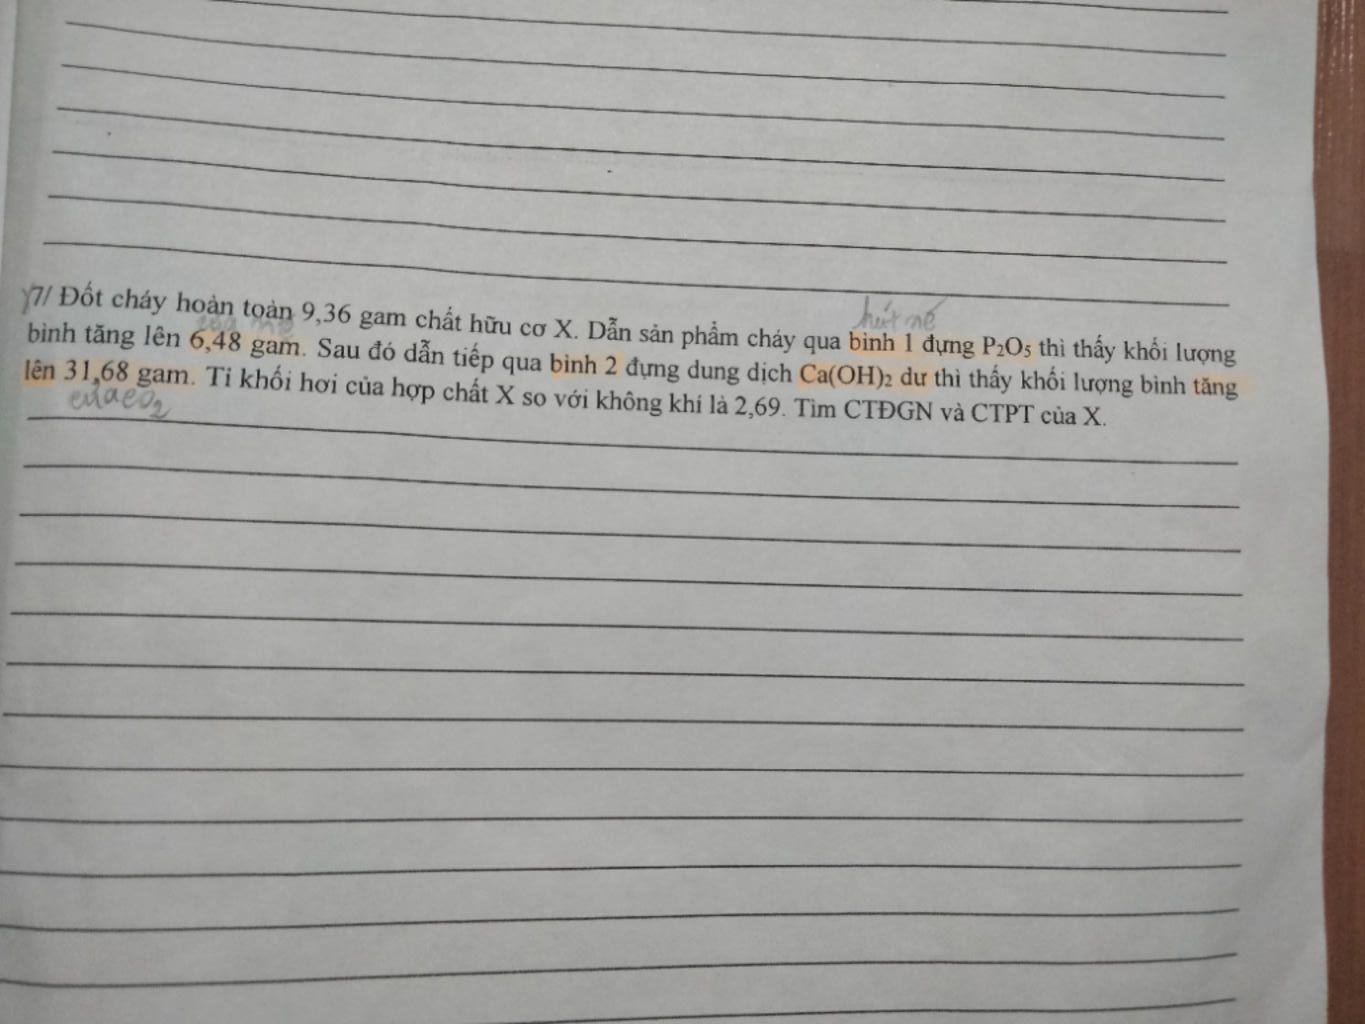 7/ Đốt cháy hoàn toàn 9,36 gam chất hữu cơ X. Dẫn sản phẩm cháy qua bình 1 đựng P₂O₅ thì thấy khối lượng
bình tăng lên 6,48 gam. Sau đó dẫn tiếp qua bình 2 đựng dung dịch Ca(OH)₂ dư thì thấy khối lượng bình tăng
lên 31,68 gam. Tỉ khối hơi của hợp chất X so với không khí là 2,69. Tìm CTĐGN và CTPT của X.
của CO₂